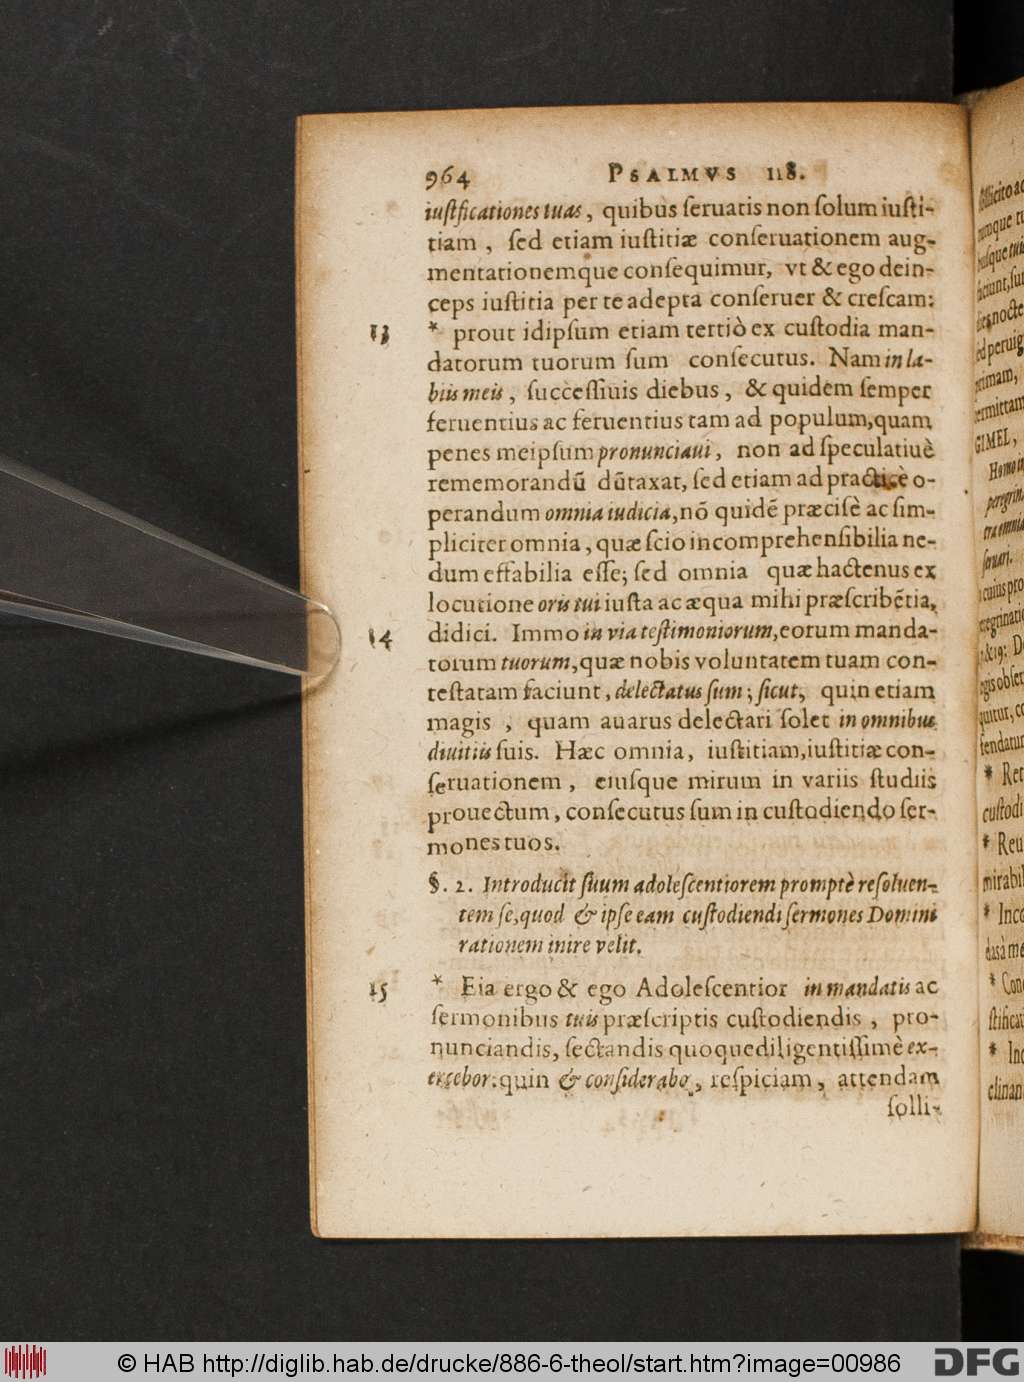 964 PSALMVS 118.
iustificationes tuas, quibus seruatis non solum iusti-
tiam, sed etiam iustitiæ conseruationem aug-
mentationemque consequimur, vt & ego dein-
ceps iustitia per te adepta conseruer & crescam:
13 * prout idipsum etiam tertiò ex custodia man-
datorum tuorum sum consecutus. Nam in la-
biis meis, successiuis diebus, & quidem semper
feruentius ac feruentius tam ad populum, quam
penes meipsum pronunciaui, non ad speculatiuè
rememorandū dūtaxat, sed etiam ad practicè o-
perandum omnia iudicia, nō quidē præcisè ac sim-
pliciter omnia, quæ scio incomprehensibilia ne-
dum effabilia esse; sed omnia quæ hactenus ex
locutione oris tui iusta ac æqua mihi præscribētia,
14 didici. Immo in via testimoniorum, eorum manda-
torum tuorum, quæ nobis voluntatem tuam con-
testatam faciunt, delectatus sum; sicut, quin etiam
magis, quam auarus delectari solet in omnibus
diuitiis suis. Hæc omnia, iustitiam, iustitiæ con-
seruationem, eiusque mirum in variis studiis
prouectum, consecutus sum in custodiendo ser-
mones tuos.
§. 2. Introducit suum adolescentiorem promptè resoluen-
tem se, quod & ipse eam custodiendi sermones Domini
rationem inire velit.
15 * Eia ergo & ego Adolescentior in mandatis ac
sermonibus tuis præscriptis custodiendis, pro-
nunciandis, sectandis quoque diligentissimè ex-
ercebor: quin & considerabo, respiciam, attendam
solli-
GIMEL,
* Ret
custodi
* Reu
mirabil
* Inco
* Con
* Inc
clinan
© HAB http://diglib.hab.de/drucke/886-6-theol/start.htm?image=00986
DFG